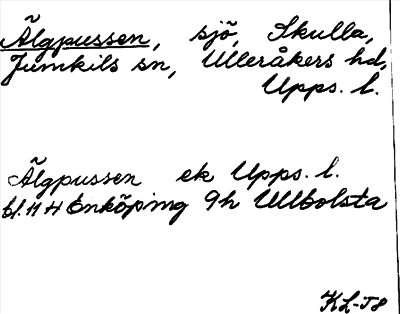 Älgpussen, sjö, Skulla,
Jumkils sn, Ulleråkers hd,
Upps. l.
Älgpussen ek Upps. l.
bl. 11 H Enköping 9h Ullbolsta
KL-T8